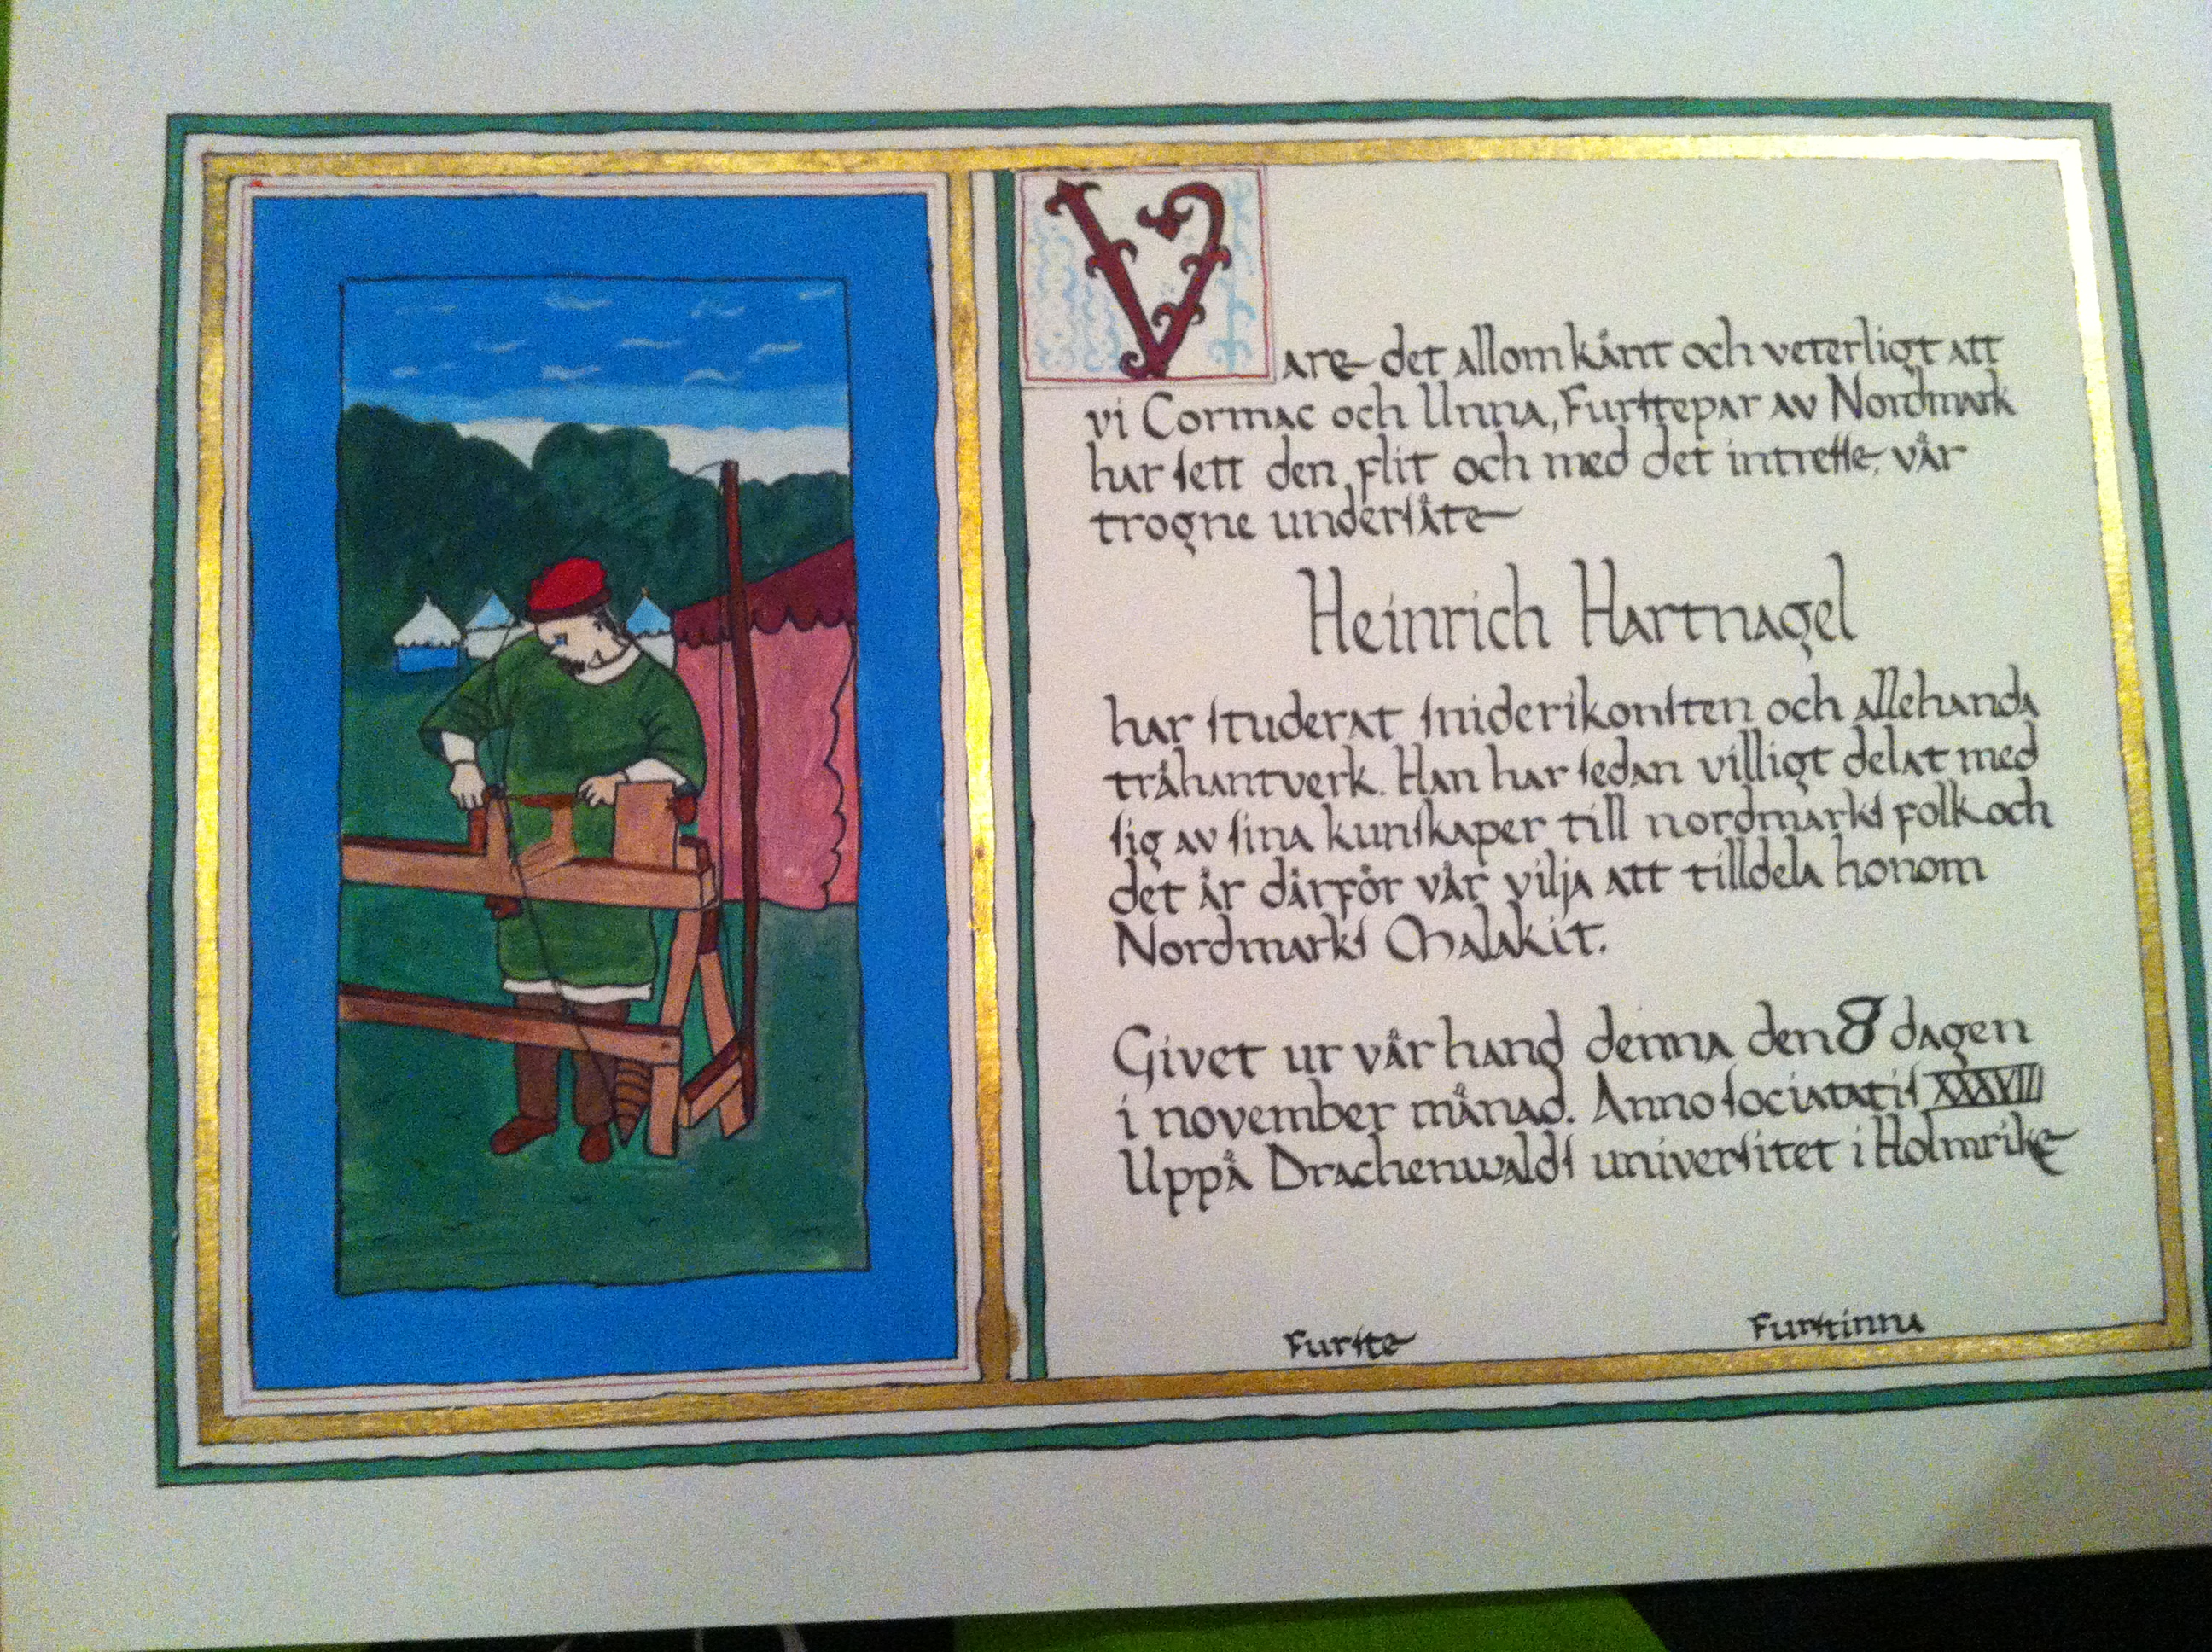 Vare det allom kånt och veterligt att
vi Cormac och Unna, Furſtepar av Nordmark
har ſett den flit och med det intreſſe, vår
trogne underſåte
Heinrich Hartnagel
har ſtuderat ſniderikonſten och allehanda
tråhantverk. Han har ſedan villigt delat med
ſig av ſina kunſkaper till nordmarkſ folk och
det år därför vår vilja att tilldela honom
Nordmarkſ Malakit.
Givet ur vår hand denna den 8 dagen
i november månad. Anno ſociatatiſ XXXXVIII
Uppå Drachenwaldſ univerſitet i Holmrike
Furſte Furſtinna